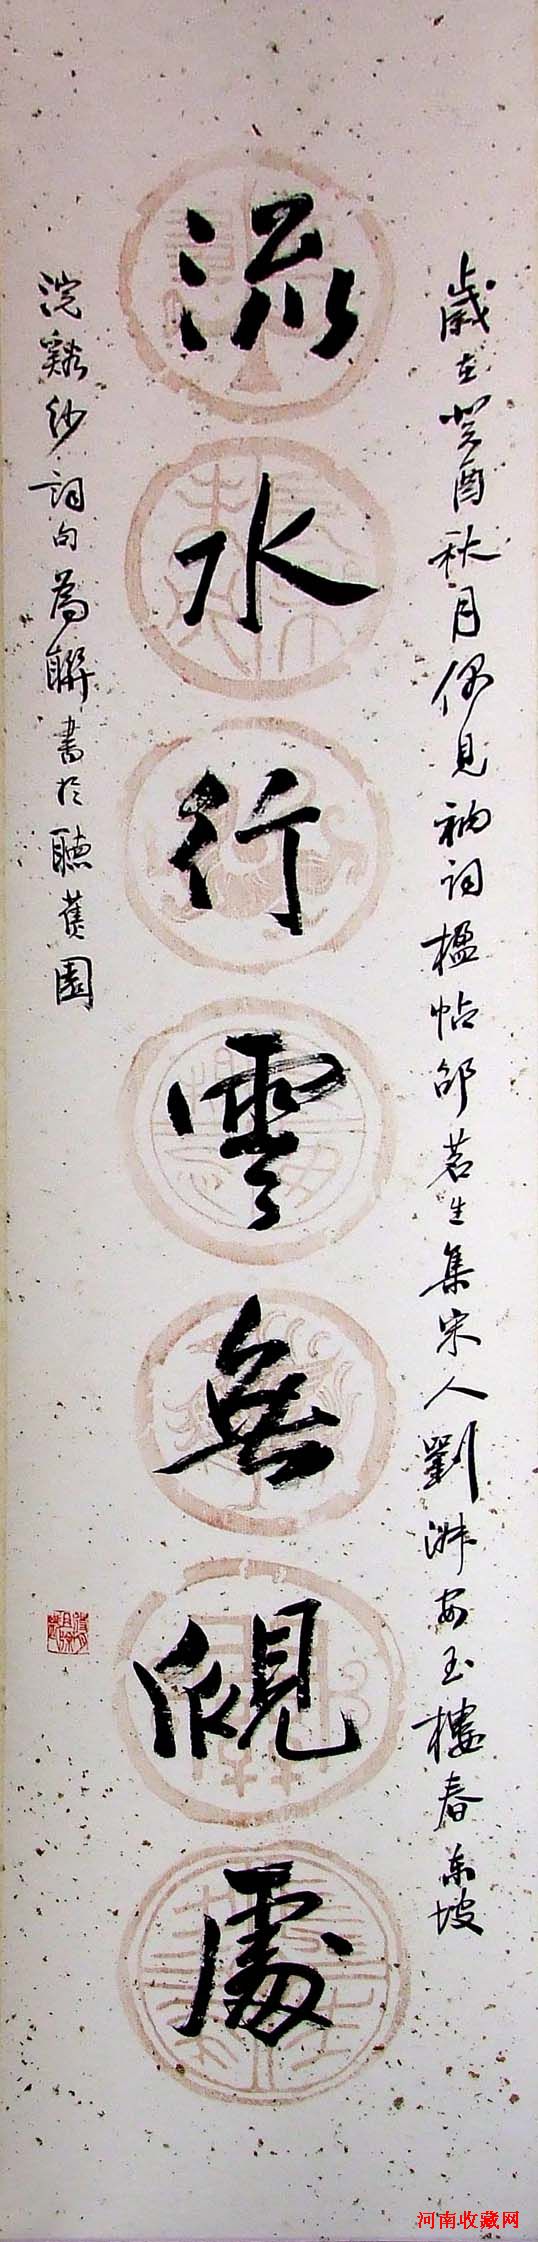 歲在癸酉秋月偶見袖詞楹帖邵茗生集宋人劉淋安玉樓春東坡
流水行雲無覷處
浣谿紗詞句為聯書於聽蕉園
河南收藏网